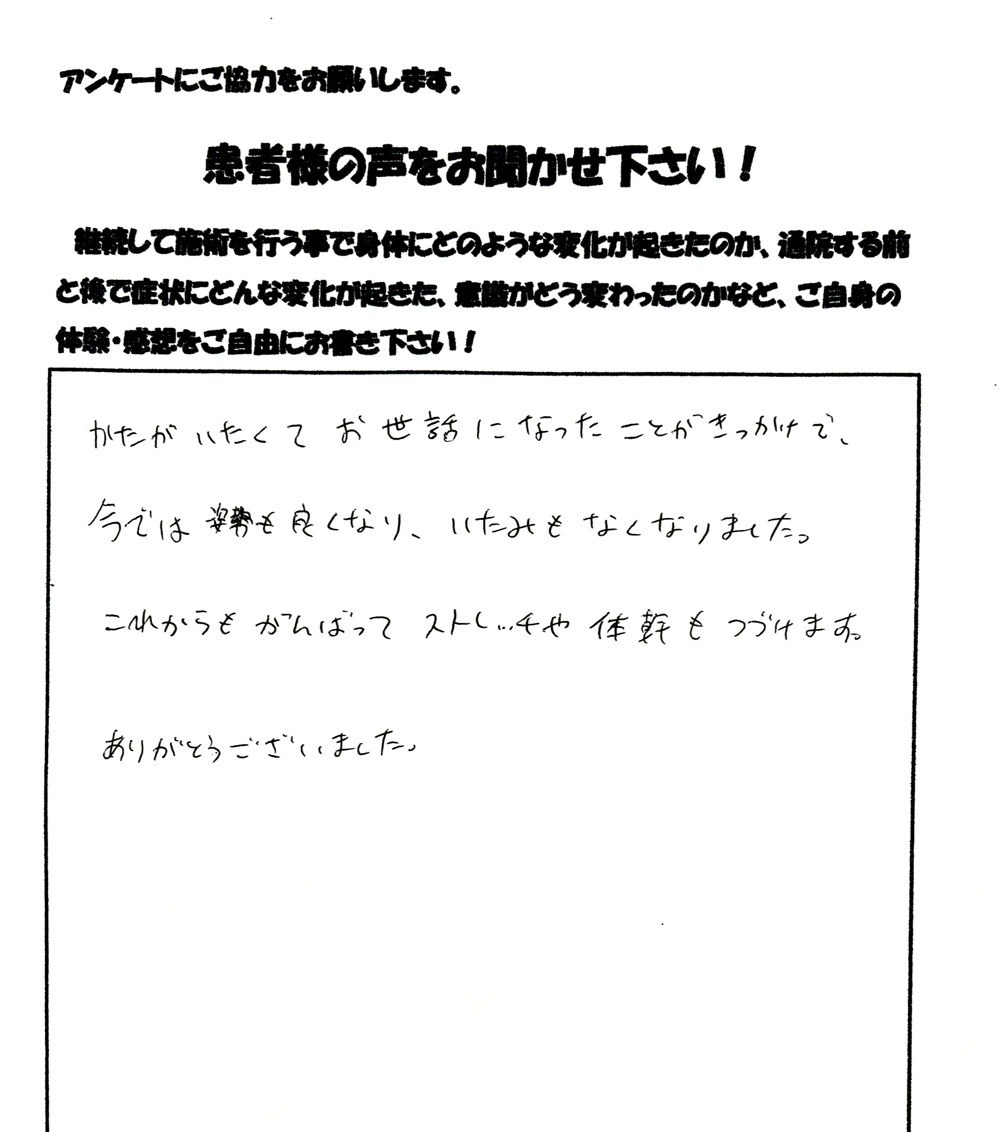 アンケートにご協力をお願いします。
患者様の声をお聞かせ下さい!
継続して施術を行う事で身体にどのような変化が起きたのか、通院する前
と後で症状にどんな変化が起きた、意識がどう変わったのかなど、ご自身の
体験・感想をご自由にお書き下さい!
かたがいたくて お世話になったことがきっかけで、
今では姿勢も良くなり、いたみもなくなりました。
これからもがんばってストレッチや体幹もつづけます。
ありがとうございました。